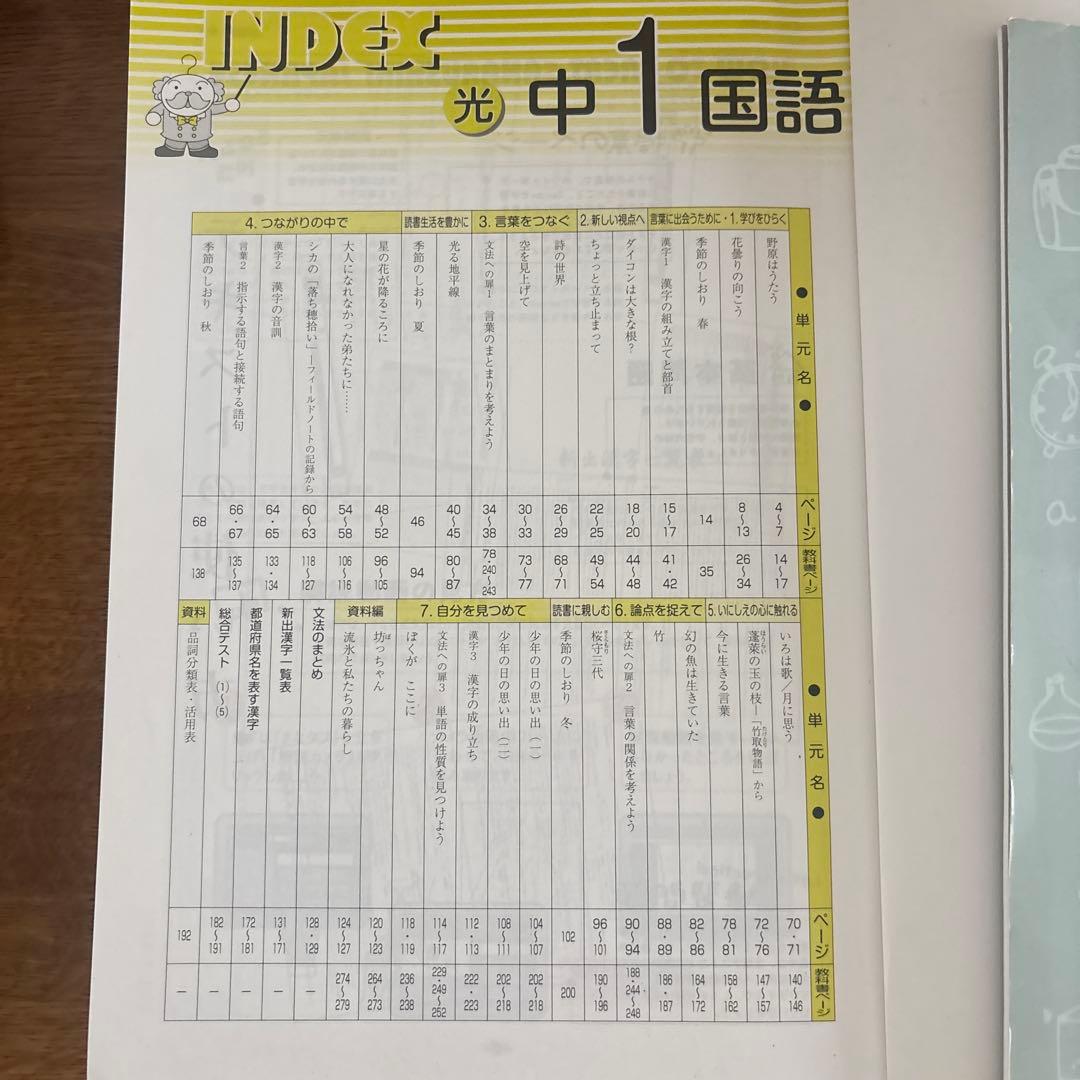 INDEX
光 中1国語
●単元名● ページ 教科書ページ
言葉に出会うために・1. 学びをひらく
野原はうたう 4〜7 14〜17
花曇りの向こう 8〜13 26〜34
季節のしおり 春 14 35
漢字1 漢字の組み立てと部首 15〜17 41・42
2. 新しい視点へ
ダイコンは大きな根? 18〜20 44〜48
ちょっと立ち止まって 22〜25 49〜54
3. 言葉をつなぐ
詩の世界 26〜29 68〜71
空を見上げて 30〜33 73〜77
文法への扉1 言葉のまとまりを考えよう 34〜38 78・240〜243
読書生活を豊かに
光る地平線 40〜45 80〜87
季節のしおり 夏 46 94
4. つながりの中で
星の花が降るころに 48〜52 96〜105
大人になれなかった弟たちに…… 54〜58 106〜116
シカの「落ち穂拾い」―フィールドノートの記録から 60〜63 118〜127
漢字2 漢字の音訓 64・65 133・134
言葉2 指示する語句と接続する語句 66・67 135〜137
季節のしおり 秋 68 138
●単元名● ページ 教科書ページ
5. いにしえの心に触れる
いろは歌/月に思う 70・71 140〜146
蓬萊の玉の枝―「竹取物語」から 72〜76 147〜157
今に生きる言葉 78〜81 158〜162
6. 論点を捉えて
幻の魚は生きていた 82〜86 164〜172
竹 88・89 186・187
文法への扉2 言葉の関係を考えよう 90〜94 188・244〜248
読書に親しむ
桜守三代 96〜101 190〜196
季節のしおり 冬 102 200
7. 自分を見つめて
少年の日の思い出(一) 104〜107 202〜218
少年の日の思い出(二) 108〜111 202〜218
漢字3 漢字の成り立ち 112・113 222・223
文法への扉3 単語の性質を見つけよう 114〜117 229・249〜252
ぼくが ここに 118・119 236〜238
資料編
坊っちゃん 120〜123 264〜273
流氷と私たちの暮らし 124〜127 274〜279
文法のまとめ 128・129 ―
新出漢字一覧表 131〜171 ―
都道府県名を表す漢字 172〜181 ―
総合テスト(1)〜(5) 182〜191 ―
資料
品詞分類表・活用表 192 ―